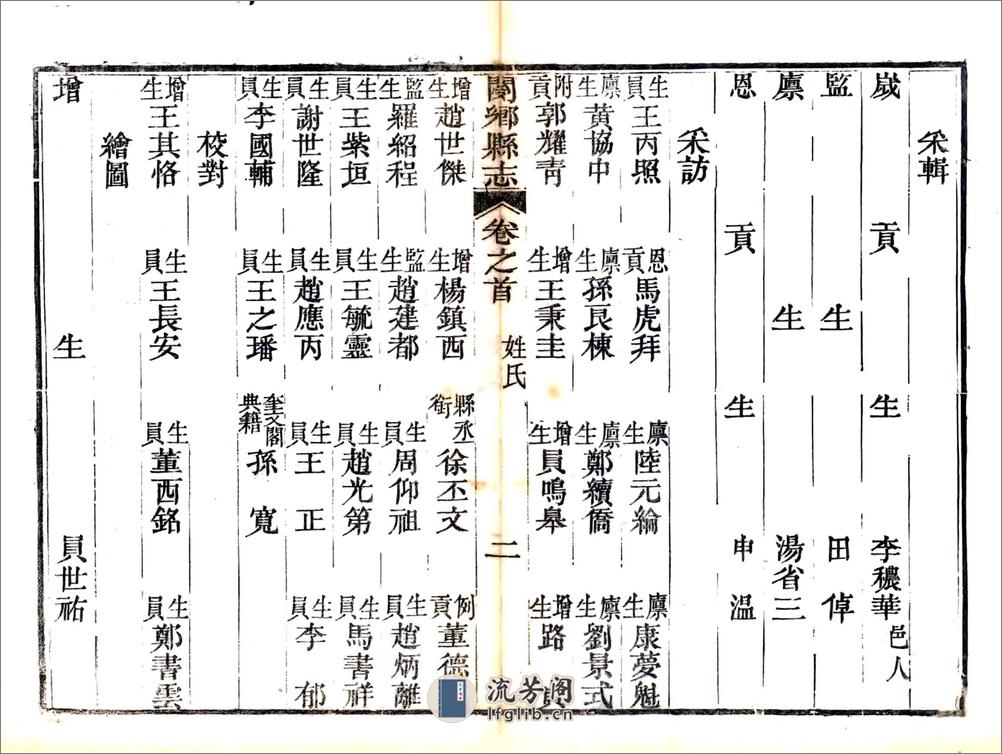 采輯
歲貢生李穠華邑人
監生田倬
廪生湯省三
恩貢生申温
采訪
生員王丙照 恩貢馬虎拜 廪生陸元綸 廪生康夢魁
廪生黃協中 廪生孫艮棟 廪生鄭續僑 廪生劉景式
附貢郭耀靑 增生王秉圭 增生員鳴臯 增生路
閿鄉縣志 卷之首 姓氏 二
增生趙世傑 增生楊鎮西 縣丞銜徐丕文 例貢董德
監生羅紹程 監生趙建都 生員周仰祖 生員趙炳離
生員王紫垣 生員王毓靈 生員趙光第 生員馬書祥
生員謝世隆 生員趙應丙 生員王正 生員李郁
生員李國輔 生員王之璠 奎文閣典籍孫寬
校對
增生王其恪 生員王長安 生員董西銘 生員鄭書雲
繪圖
增生員世祐
流芳阁
lfglib.cn